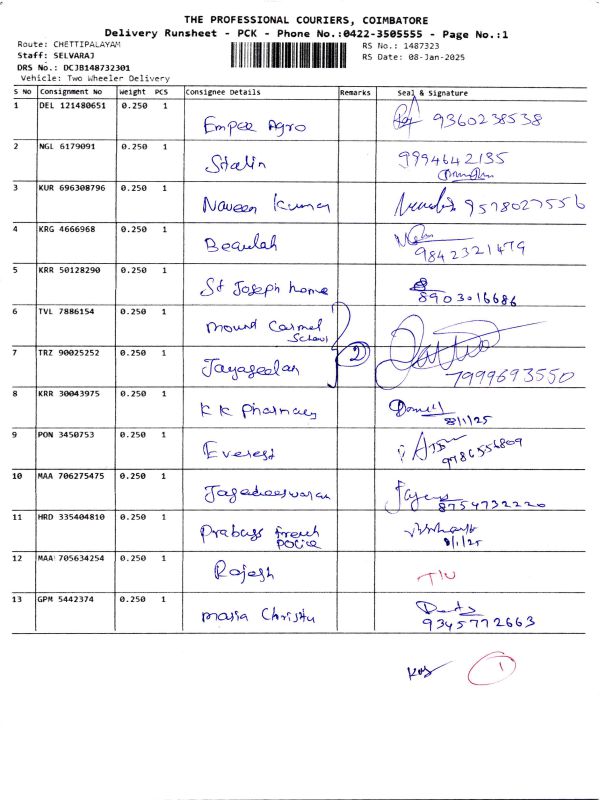 THE PROFESSIONAL COURIERS, COIMBATORE
Delivery Runsheet - PCK - Phone No.:0422-3505555 - Page No.:1
Route: CHETTIPALAYAM RS No.: 1487323
Staff: SELVARAJ RS Date: 08-Jan-2025
DRS No.: DCJB148732301
Vehicle: Two Wheeler Delivery
S No Consignment No Weight PCS Consignee Details Remarks Seal & Signature
1 DEL 121480651 0.250 1 Empee Agro 9360238538
2 NGL 6179091 0.250 1 Stalin 9994642135
3 KUR 696308796 0.250 1 Naveen Kumar 9578027556
4 KRG 4666968 0.250 1 Beaulah 9842321479
5 KRR 50128290 0.250 1 St Joseph home 8903016686
6 TVL 7886154 0.250 1 mount Carmel School
7 TRZ 90025252 0.250 1 Jayaseelan 2 7999693550
8 KRR 30043975 0.250 1 KK Pharmacy 8/1/25
9 PON 3450753 0.250 1 Everest 9786556809
10 MAA 706275475 0.250 1 Jagadeeswaran 8754732220
11 HRD 335404810 0.250 1 Prabags French police 8/1/25
12 MAA 705634254 0.250 1 Rajesh
13 GPM 5442374 0.250 1 maria Christu 9345772663
1